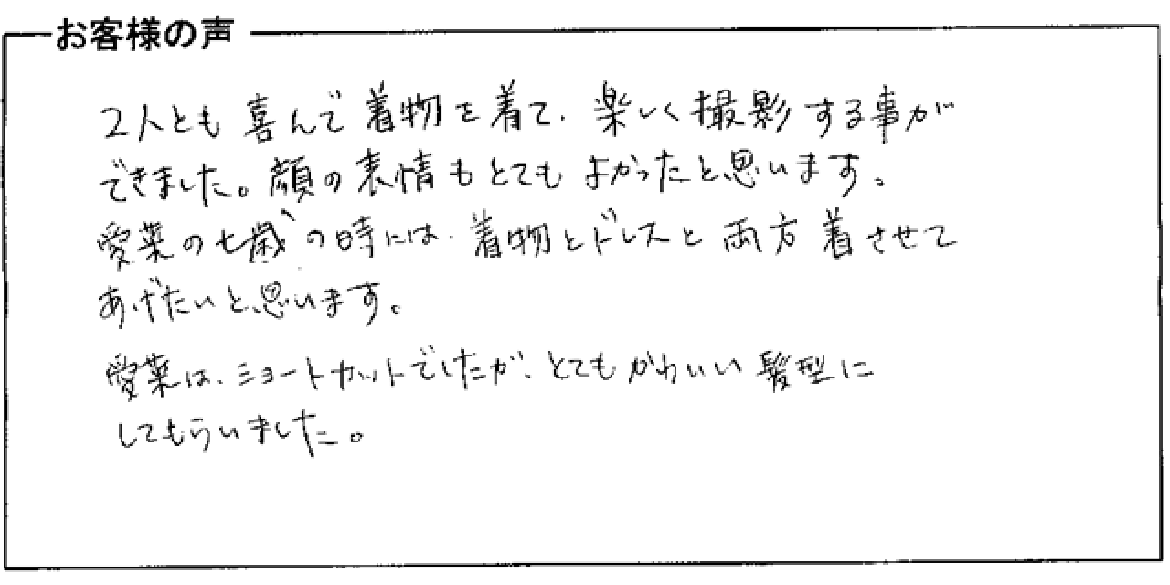 お客様の声
2人とも喜んで着物を着て、楽しく撮影する事が
できました。顔の表情もとてもよかったと思います。
愛菜の七歳の時には、着物とドレスと両方着させて
あげたいと思います。
愛菜は、ショートカットでしたが、とてもかわいい髪型に
してもらいました。